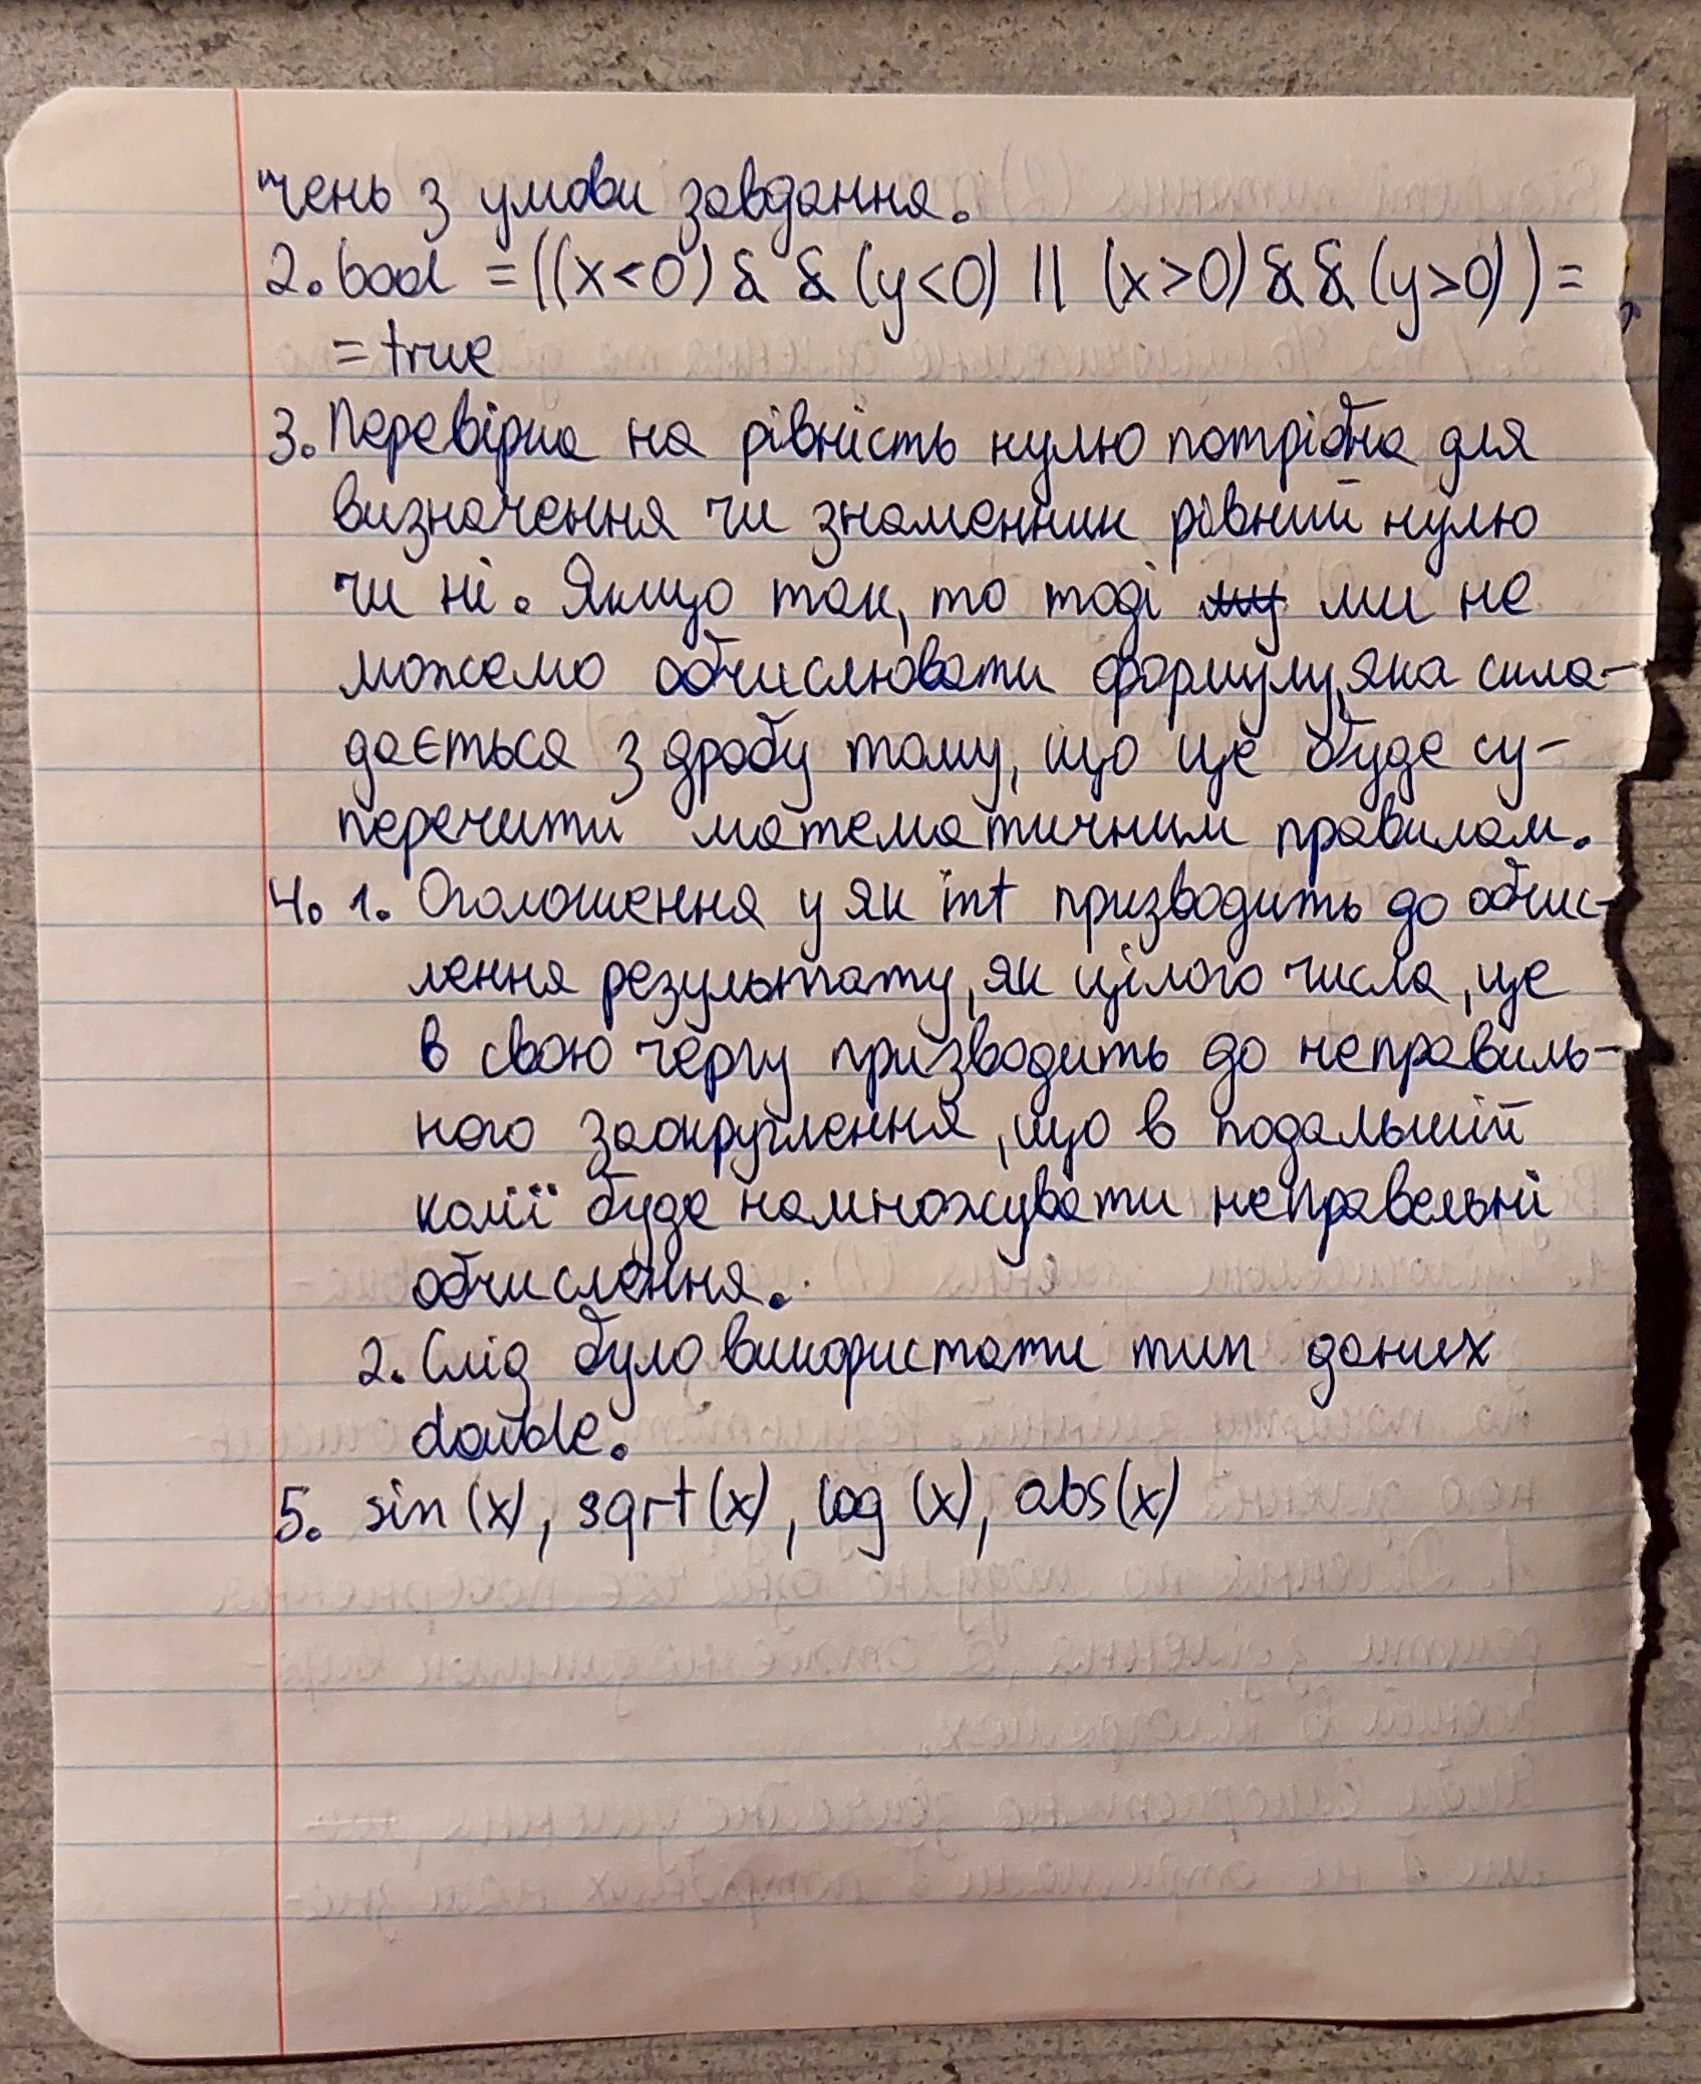 чень з умови завдання.
2. bool = ((x<0) && (y<0) || (x>0) && (y>0)) =
= true
3. Перевірка на рівність нулю потрібна для
визначення чи знаменник рівний нулю
чи ні. Якщо так, то тоді ми не
можемо обчислювати формулу, яка скла-
дається з дробу тому, що це буде су-
перечити математичним правилам.
4. 1. Оголошення y як int призводить до обчис-
лення результату, як цілого числа, це
в свою чергу призводить до неправиль-
ного заокруглення, що в подальшій
колії буде намножувати неправельні
обчислення.
2. Слід було використати тип даних
double.
5. sin(x), sqrt(x), log(x), abs(x)